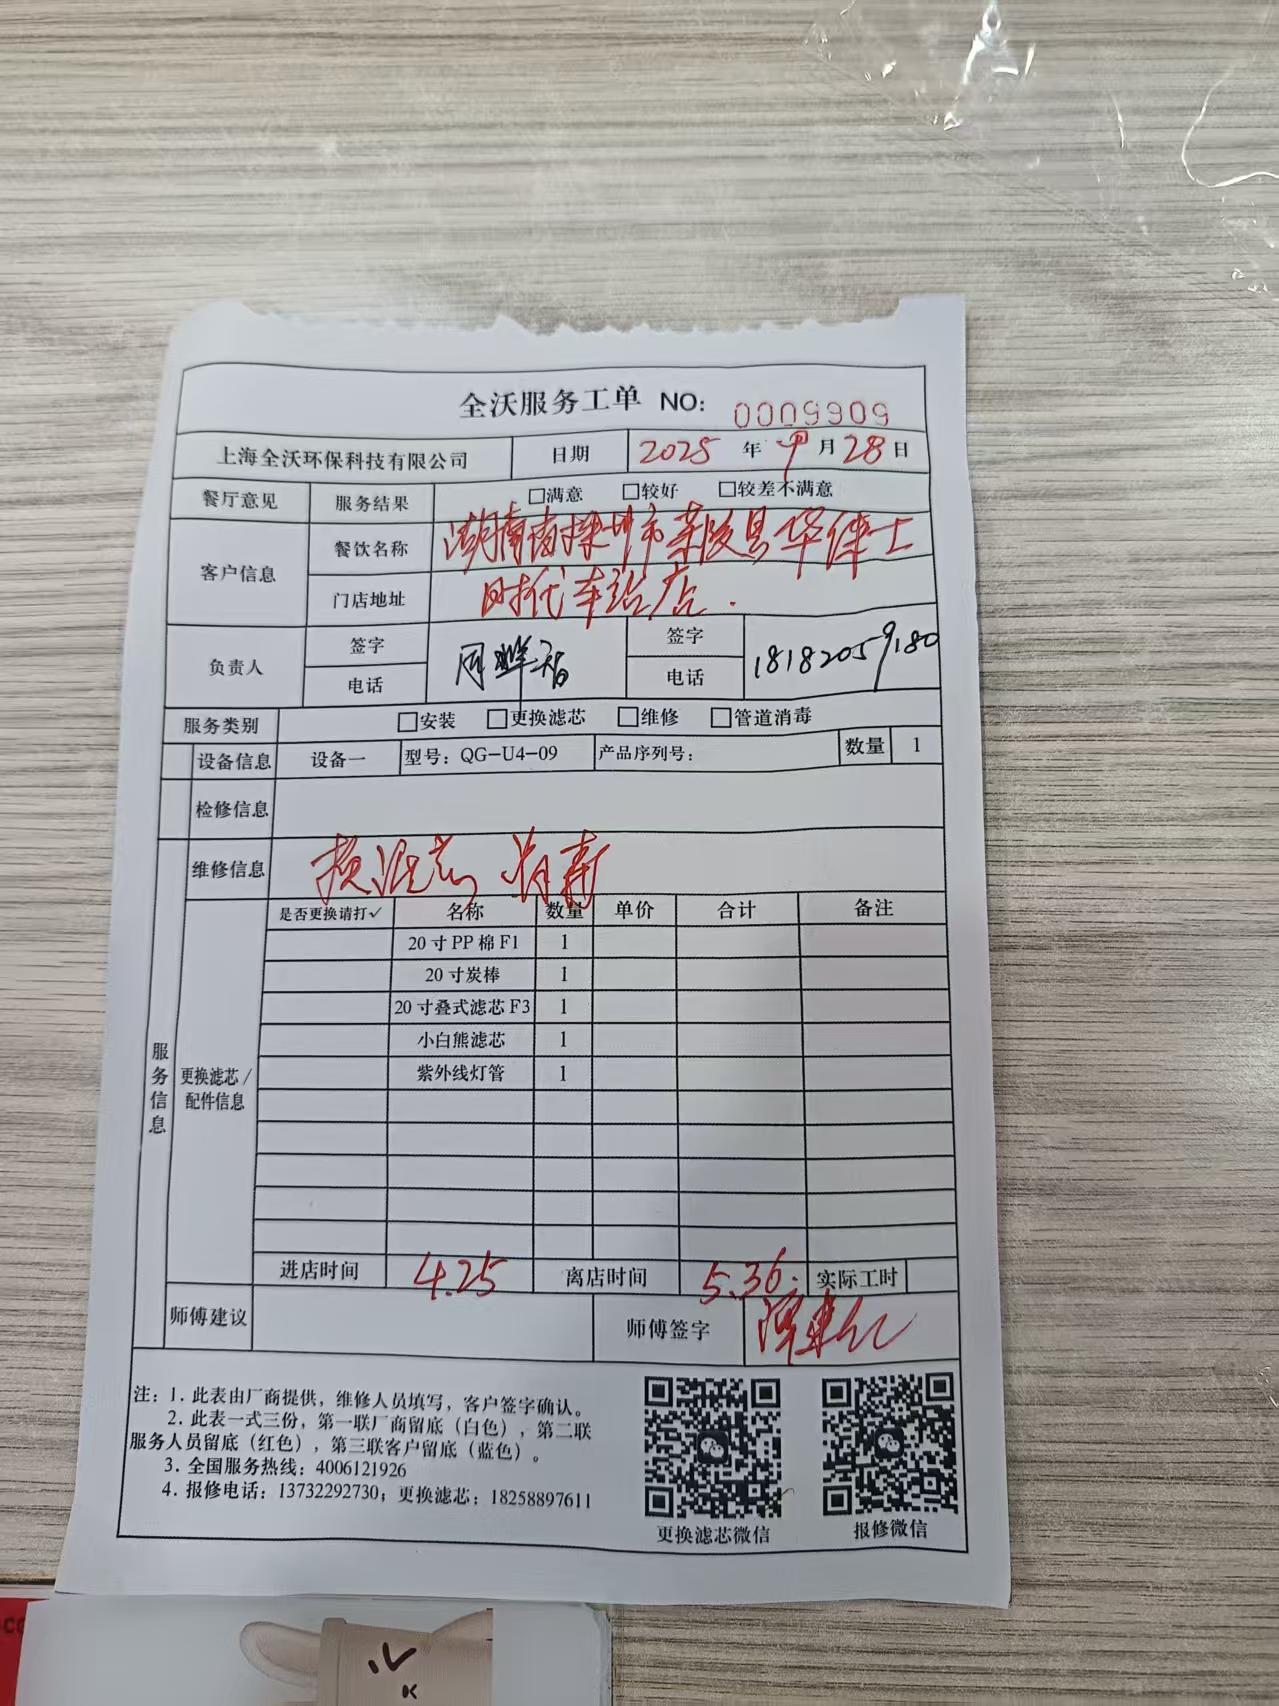 全沃服务工单 NO: 0009909
上海全沃环保科技有限公司 日期 2025 年 9 月 28 日
餐厅意见 服务结果 □满意 □较好 □较差不满意
客户信息 餐饮名称 湖南省株洲市茶陵县华莱士
门店地址 时代车站店.
负责人 签字 周 签字
电话 电话 18182059180
服务类别 □安装 □更换滤芯 □维修 □管道消毒
设备信息 设备一 型号：QG-U4-09 产品序列号： 数量 1
检修信息
维修信息 换滤芯 消毒
服务信息
更换滤芯/配件信息
是否更换请打✓ 名称 数量 单价 合计 备注
20寸PP棉F1 1
20寸炭棒 1
20寸叠式滤芯F3 1
小白熊滤芯 1
紫外线灯管 1
进店时间 4.25 离店时间 5.36. 实际工时
师傅建议 师傅签字
注：1. 此表由厂商提供，维修人员填写，客户签字确认。
2. 此表一式三份，第一联厂商留底（白色），第二联
服务人员留底（红色），第三联客户留底（蓝色）。
3. 全国服务热线：4006121926
4. 报修电话：13732292730；更换滤芯：18258897611
更换滤芯微信 报修微信